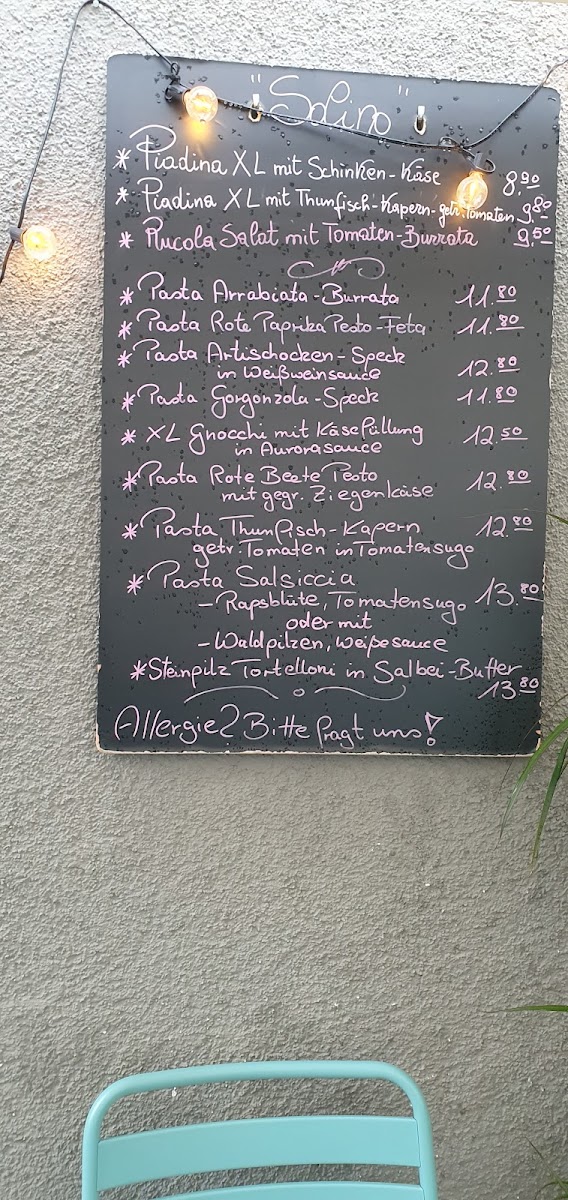 "Solino"
* Piadina XL mit Schinken-Käse 8.90
* Piadina XL mit Thunfisch-Kapern-getr.Tomaten 9.80
* Rucola Salat mit Tomaten-Burrata 9.50
* Pasta Arrabiata-Burrata 11.80
* Pasta Rote Paprika Pesto-Feta 11.80
* Pasta Artischocken-Speck
in Weißweinsauce 12.80
* Pasta Gorgonzola-Speck 11.80
* XL Gnocchi mit Käsefüllung 12.50
in Aurorasauce
* Pasta Rote Beete Pesto 12.80
mit gegr. Ziegenkäse
* Pasta Thunfisch-Kapern 12.80
getr. Tomaten in Tomatensugo
* Pasta Salsiccia 13.80
- Rapsblüte, Tomatensugo
oder mit
- Waldpilzen, weiße sauce
* Steinpilz Tortelloni in Salbei-Butter
13.80
Allergie? Bitte fragt uns!